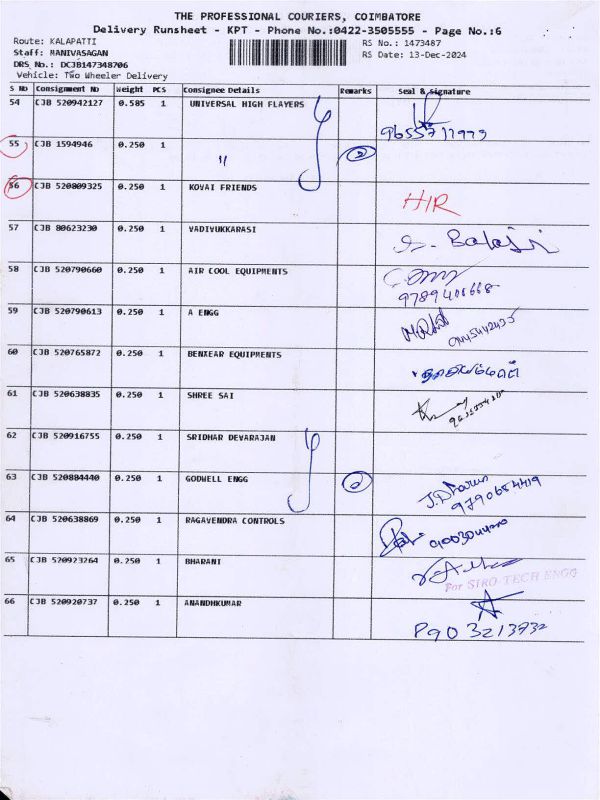 THE PROFESSIONAL COURIERS, COIMBATORE
Delivery Runsheet - KPT - Phone No.:0422-3505555 - Page No.:6
Route: KALAPATTI RS No.: 1473487
Staff: MANIVASAGAN RS Date: 13-Dec-2024
DRS No.: DCJB147348706
Vehicle: Two Wheeler Delivery
S No Consignment No Weight PCS Consignee Details Remarks Seal & signature
54 CJB 520942127 0.585 1 UNIVERSAL HIGH FLAYERS
55 CJB 1594946 0.250 1 " 2
56 CJB 520809325 0.250 1 KOVAI FRIENDS H/R
57 CJB 80623230 0.250 1 VADIVUKKARASI S. Balaji
58 CJB 520790660 0.250 1 AIR COOL EQUIPMENTS
59 CJB 520790613 0.250 1 A ENGG
60 CJB 520765872 0.250 1 BENXEAR EQUIPMENTS
61 CJB 520638835 0.250 1 SHREE SAI
62 CJB 520916755 0.250 1 SRIDHAR DEVARAJAN
63 CJB 520884440 0.250 1 GODWELL ENGG 2
64 CJB 520638869 0.250 1 RAGAVENDRA CONTROLS
65 CJB 520923264 0.250 1 BHARANI
For SIRO-TECH ENGG
66 CJB 520920737 0.250 1 ANANDHKUMAR